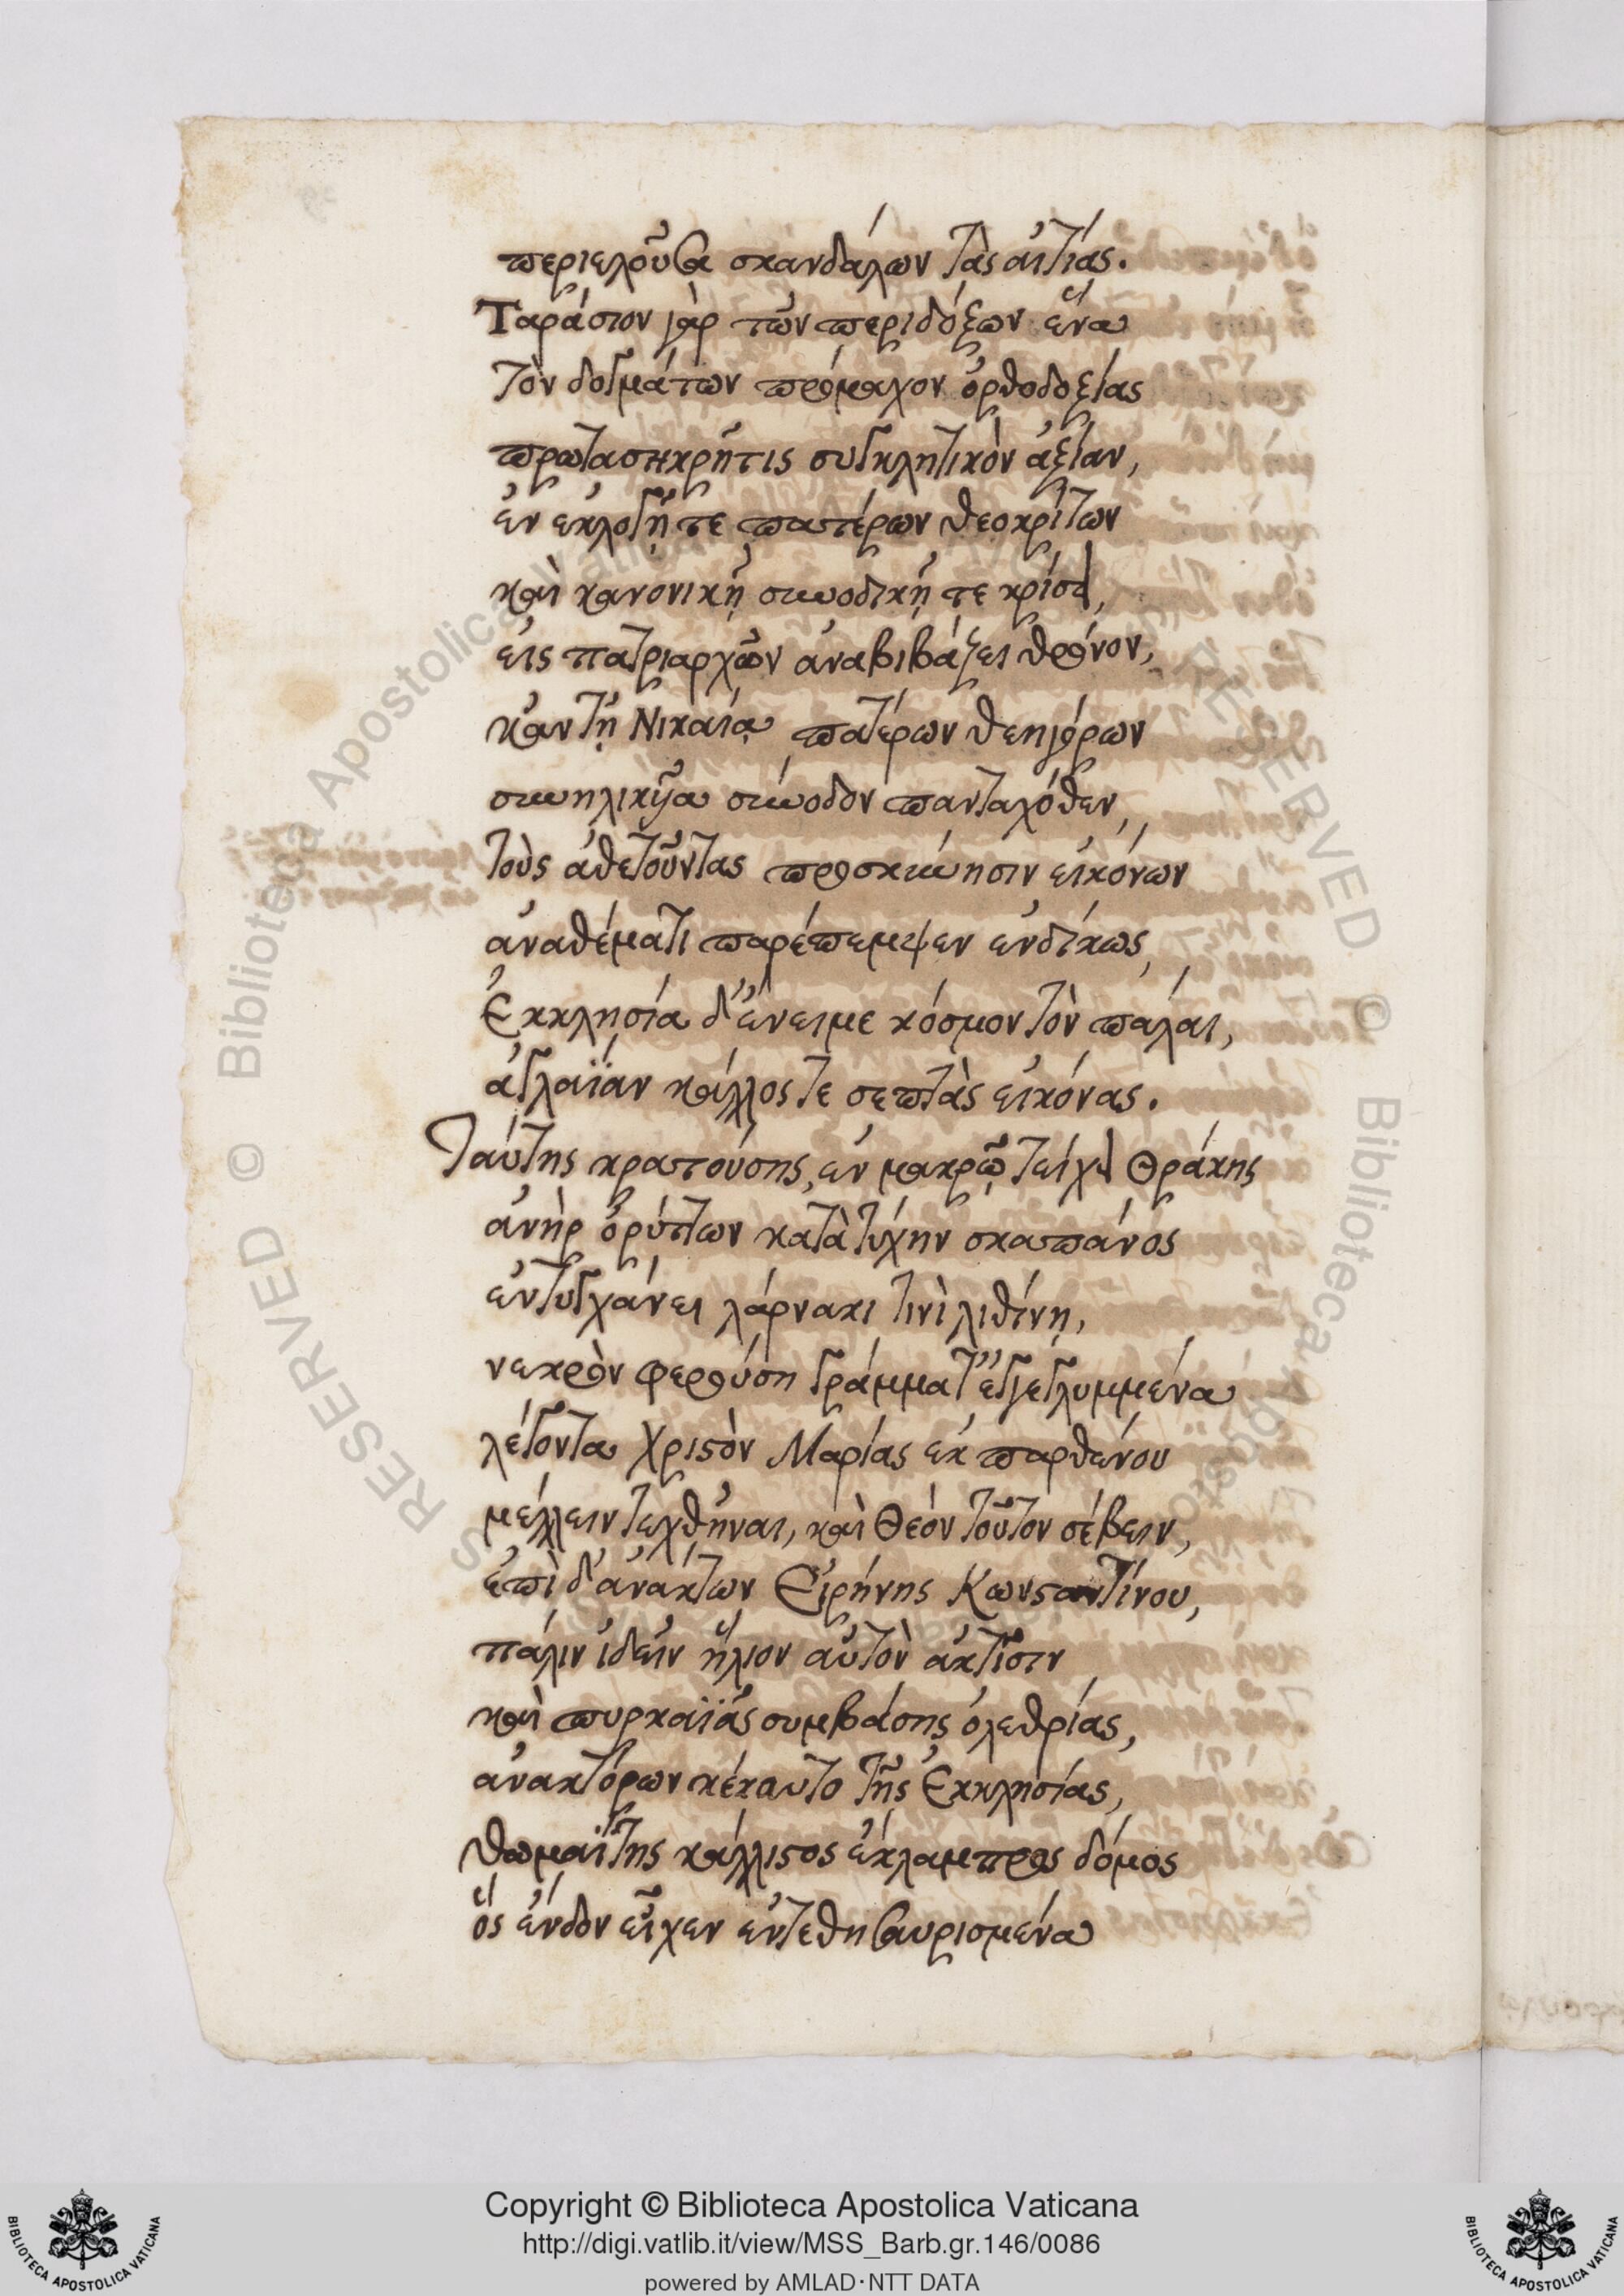 περιελοῦσα σκανδάλων τὰς αἰτίας.
Ταράσιον γὰρ τῶν περιδόξων ἕνα
τὸν δογμάτων πρόμαχον ὀρθοδοξίας
πρωτασηκρῆτις συγκλητικὸν ἀξίαν,
ἐν ἐκλογῇ τε πατέρων θεοκρίτων
καὶ κανονικῇ συνοδικῇ τε κρίσει,
εἰς πατριαρχῶν ἀναβιβάζει θρόνον,
κἂν τῇ Νικαίᾳ πατέρων θεηγόρων
συνηλικυῖα σύνοδον πανταχόθεν,
τοὺς ἀθετοῦντας προσκύνησιν εἰκόνων
ἀναθέματι παρέπεμψεν ἐνδίκως,
Ἐκκλησία δ' ἔνειμε κόσμον τὸν πάλαι,
ἀγλαΐαν κάλλος τε σεπτὰς εἰκόνας.
Ταύτης κρατούσης, ἐν μακρῷ τείχει Θράκης
ἀνὴρ ὀρύττων κατὰ τύχην σκαπάνος
ἐντυγχάνει λάρνακι τινὶ λιθίνῃ,
νεκρὸν φερούσῃ γράμματ' ἐγγεγλυμμένα
λέγοντα Χριστὸν Μαρίας ἐκ παρθένου
μέλλειν τεχθῆναι, καὶ Θεὸν τοῦτον σέβειν,
ἐπὶ δ' ἀνάκτων Εἰρήνης Κωνσταντίνου,
πάλιν ἰδεῖν ἥλιον αὐτὸν ἀκτῖσιν
καὶ πυρκαϊᾶς συμβάσης ὀλεθρίας,
ἀνακτόρων κέκαυτο τῆς Ἐκκλησίας,
θωμαΐτης κάλλιστος ἔκλαμπρος δόμος
ὃς ἔνδον εἶχεν ἐντεθησαυρισμένα
Copyright © Biblioteca Apostolica Vaticana
http://digi.vatlib.it/view/MSS_Barb.gr.146/0086
powered by AMLAD·NTT DATA
BIBLIOTECA APOSTOLICA VATICANA
BIBLIOTECA APOSTOLICA VATICANA